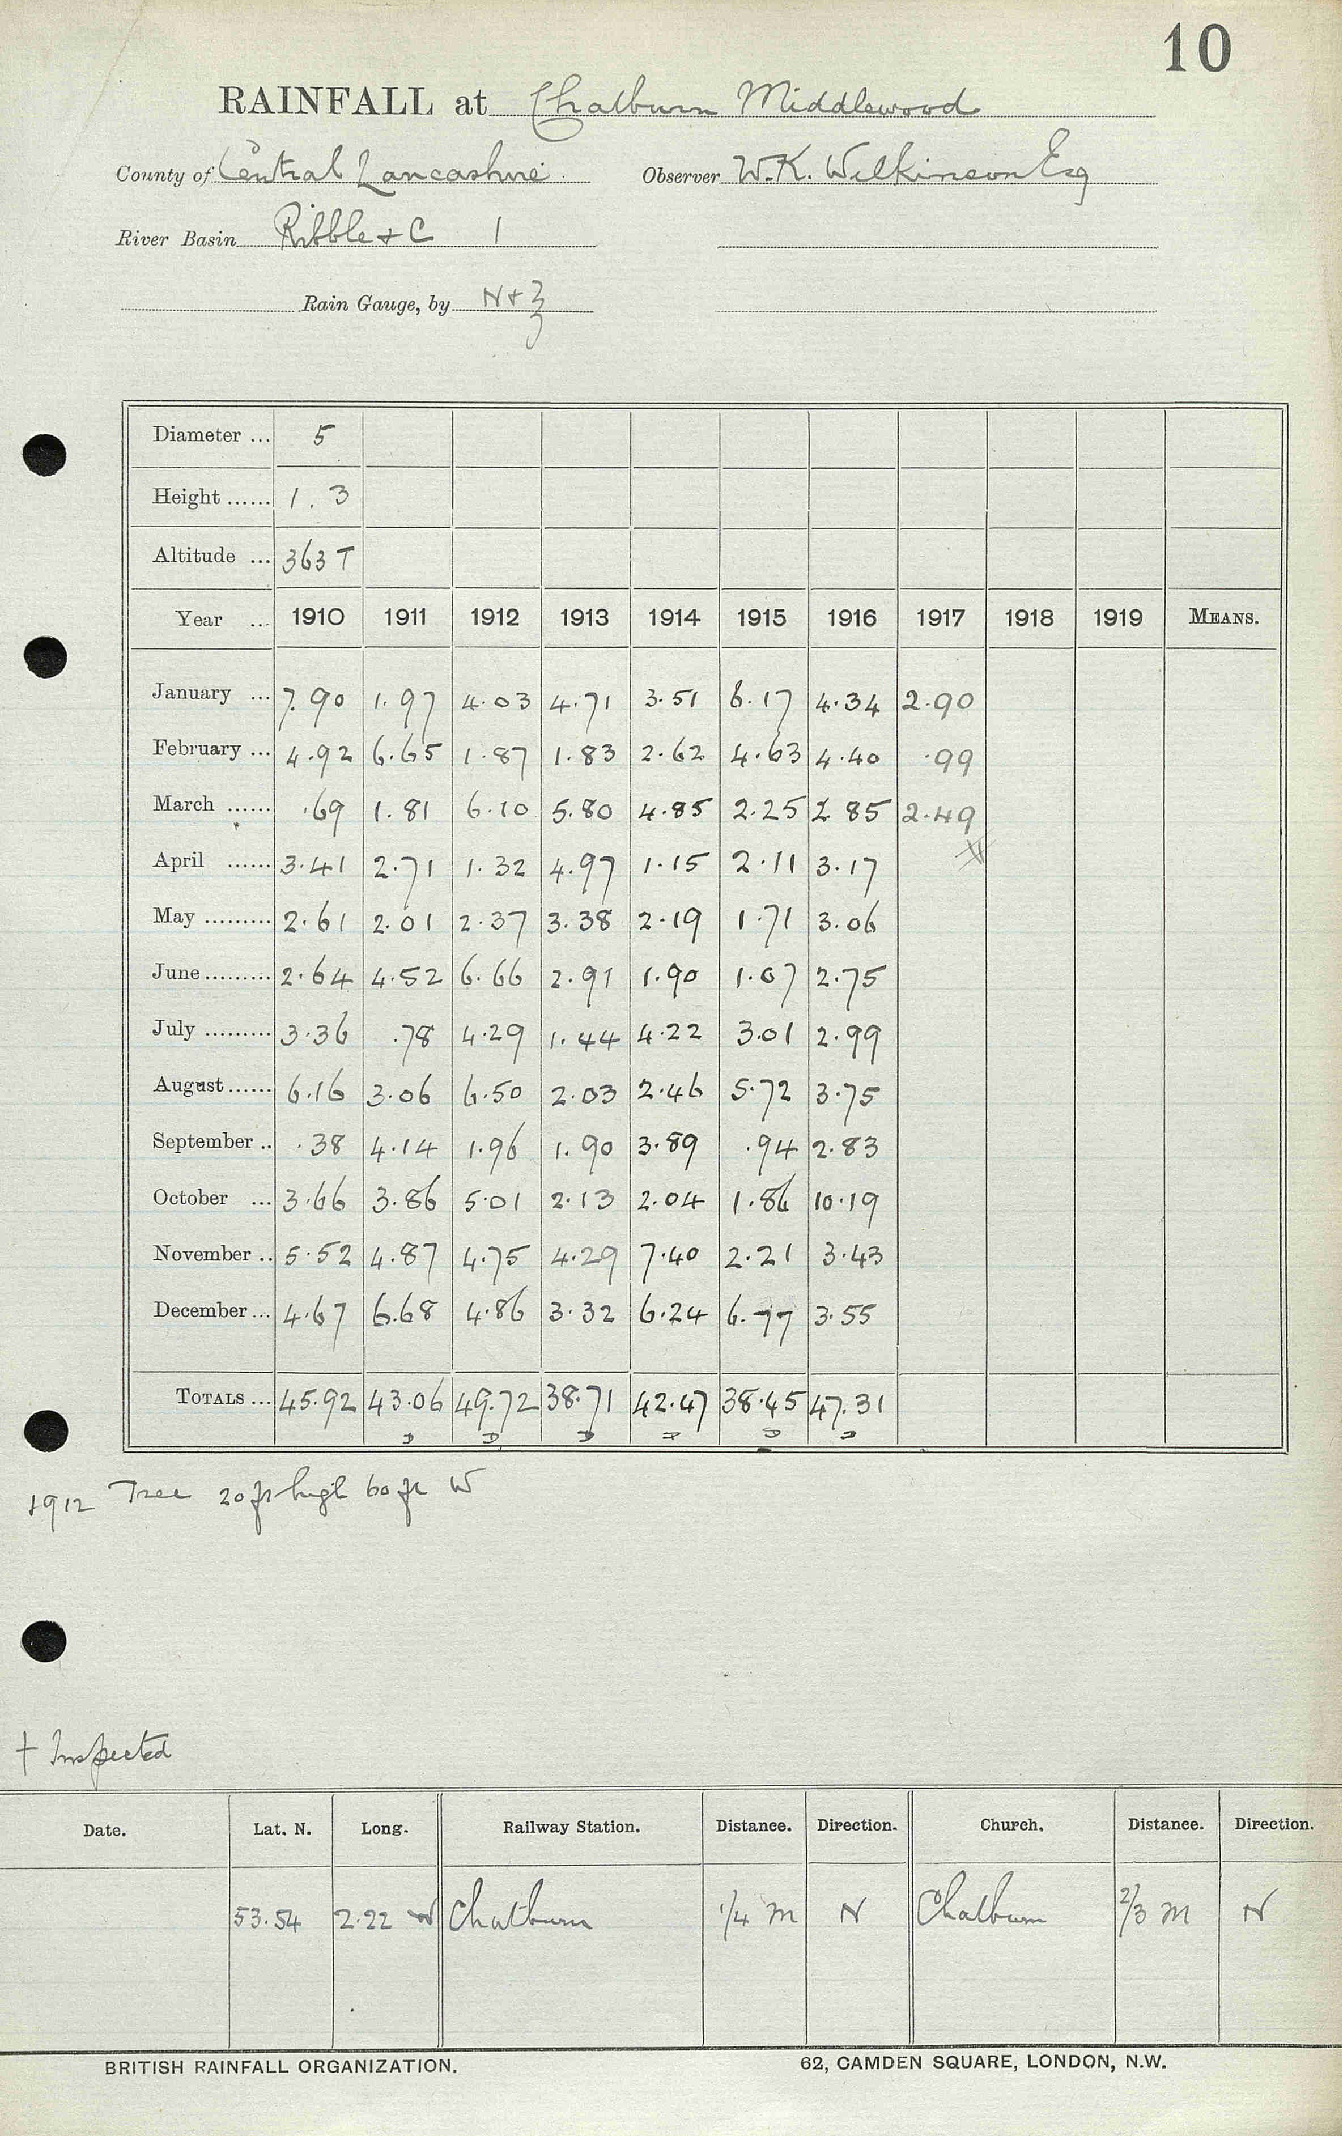 10
RAINFALL at Chatburn Middlewood
County of Central Lancashire. Observer W.K. Wilkinson Esq
River Basin Ribble & C 1
Rain Gauge, by N & Z
Diameter ... 5
Height ...... 1 . 3
Altitude ... 363 T
Year ... 1910 1911 1912 1913 1914 1915 1916 1917 1918 1919 MEANS.
January ... 7.90 1.97 4.03 4.71 3.51 6.17 4.34 2.90
February ... 4.92 6.65 1.87 1.83 2.62 4.63 4.40 .99
March ...... .69 1.81 6.10 5.80 4.85 2.25 2 85 2.49
April ...... 3.41 2.71 1.32 4.97 1.15 2.11 3.17
May ......... 2.61 2.01 2.37 3.38 2.19 1.71 3.06
June ......... 2.64 4.52 6.66 2.91 1.90 1.07 2.75
July ......... 3.36 .78 4.29 1.44 4.22 3.01 2.99
August ...... 6.16 3.06 6.50 2.03 2.46 5.72 3.75
September .. .38 4.14 1.96 1.90 3.89 .94 2.83
October ... 3.66 3.86 5.01 2.13 2.04 1.86 10.19
November .. 5.52 4.87 4.75 4.29 7.40 2.21 3.43
December ... 4.67 6.68 4.86 3.32 6.24 6.77 3.55
TOTALS ... 45.92 43.06 49.72 38.71 42.47 38.45 47.31
1912 Tree 20 ft high 60 ft W
† Inspected
Date. Lat. N. Long. Railway Station. Distance. Direction. Church. Distance. Direction.
53.54 2.22 W Chatburn 1/4 m N Chatburn 2/3 m N
BRITISH RAINFALL ORGANIZATION. 62, CAMDEN SQUARE, LONDON, N.W.